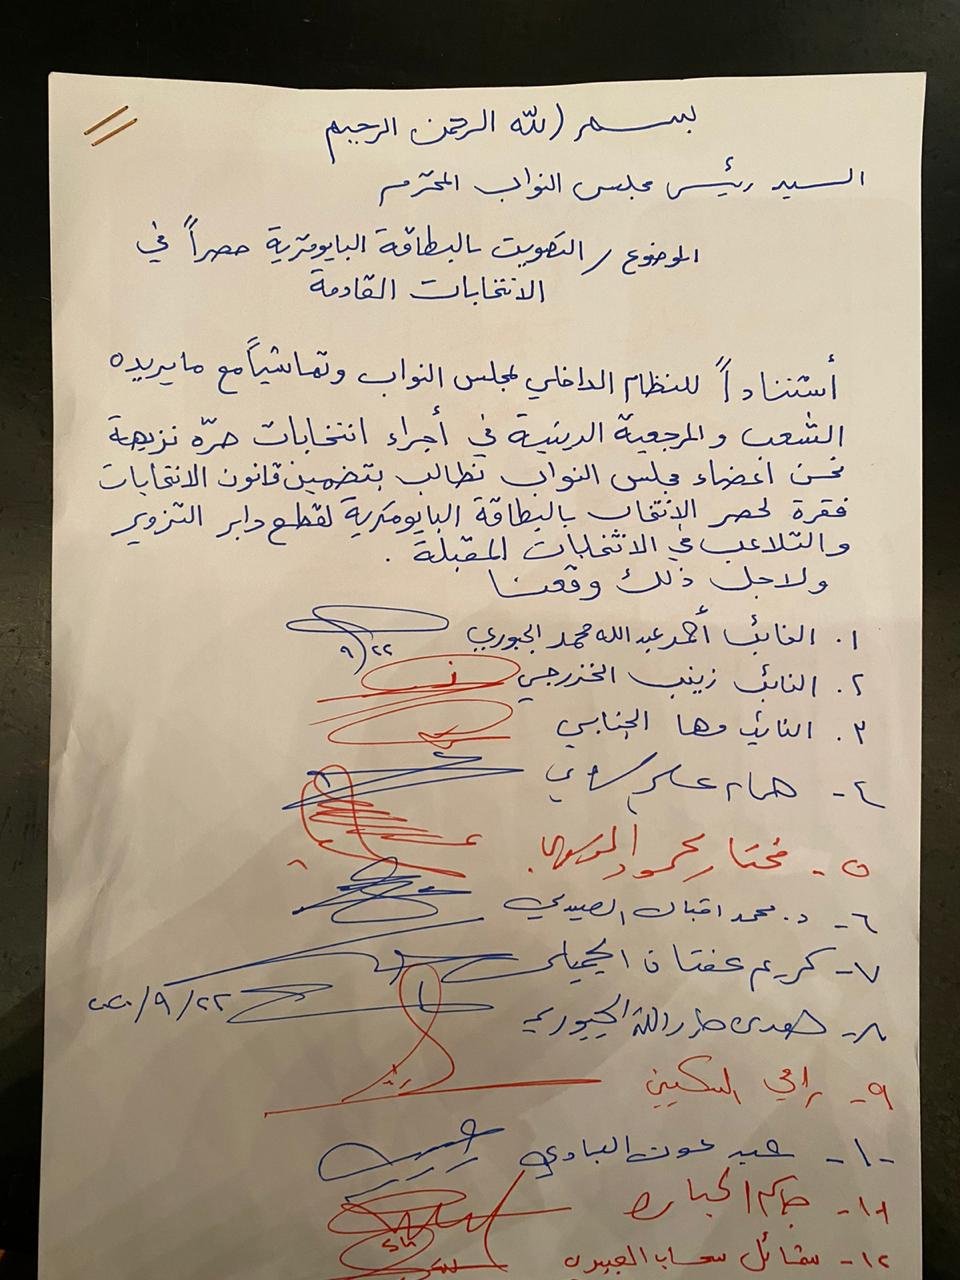 بسم الله الرحمن الرحيم
السيد رئيس مجلس النواب المحترم
الموضوع / التصويت بالبطاقة البايومترية حصراً في
الانتخابات القادمة
أستناداً للنظام الداخلي لمجلس النواب وتماشياً مع ما يريده
الشعب والمرجعية الدينية في أجراء انتخابات حرّة نزيهة
نحن اعضاء مجلس النواب نطالب بتضمين قانون الانتخابات
فقرة لحصر الانتخاب بالبطاقة البايومترية لقطع دابر التزوير
والتلاعب في الانتخابات المقبلة .
ولاجل ذلك وقعنا
١. النائب أحمد عبدالله محمد الجبوري
٩/٢٢
٢. النائب زينب الخزرجي
٣. النائب وها الجنابي
٤- همام علي
٥- مختار محمود الموسوي
٦- د. محمد اقبال الصيدلي
٧- كريم عفتان الجميلي
٨- هدى جارالله الجبوري
٢٠٢٠/٩/٢٢
٩- رامي السكيني
١٠- عون البادي
١١- جاسم الجبارة
١٢-